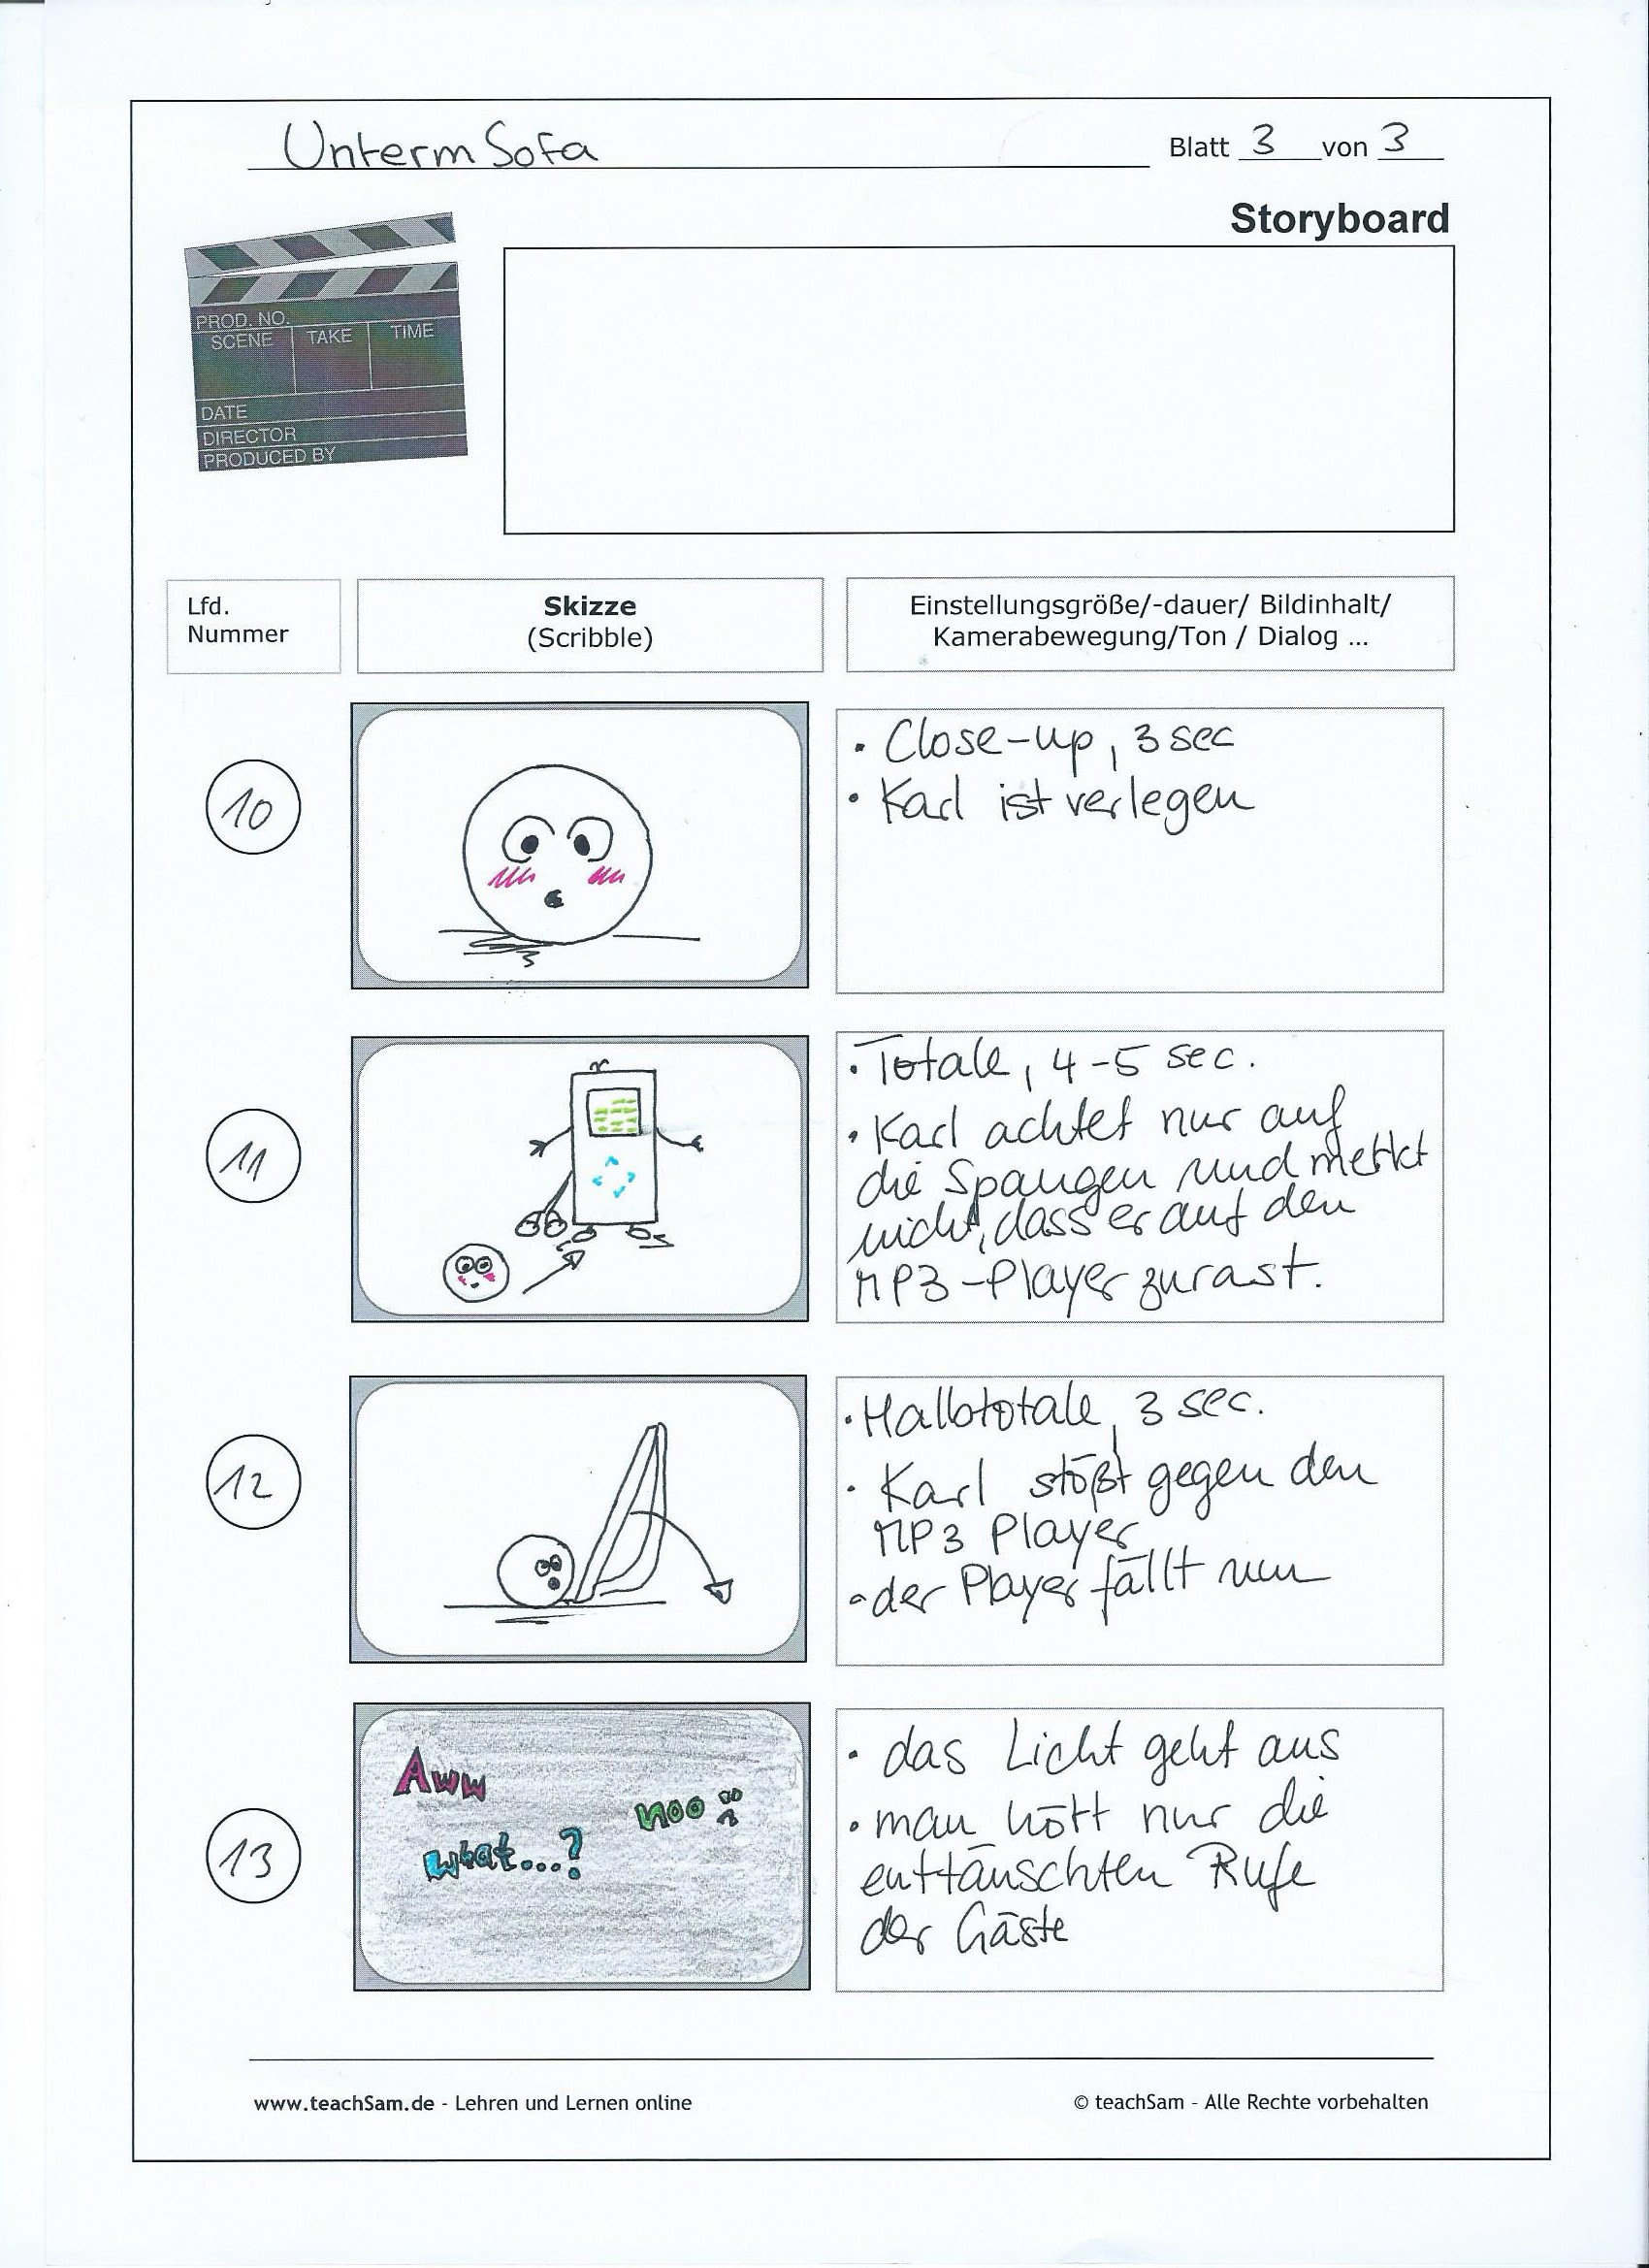 Unterm Sofa
Blatt 3 von 3
Storyboard
PROD. NO.
SCENE TAKE TIME
DATE
DIRECTOR
PRODUCED BY
Lfd.
Nummer
Skizze
(Scribble)
Einstellungsgröße/-dauer/ Bildinhalt/
Kamerabewegung/Ton / Dialog ...
10
• Close-up, 3 sec
• Karl ist verlegen
11
• Totale, 4-5 sec.
• Karl achtet nur auf
die Spangen und merkt
nicht, dass er auf den
MP3-Player zurast.
12
• Halbtotale, 3 sec.
• Karl stößt gegen den
MP3 Player
• der Player fällt um
13
Aww
noo
what...?
• das Licht geht aus
• man hört nur die
enttäuschten Rufe
der Gäste
www.teachSam.de - Lehren und Lernen online
© teachSam - Alle Rechte vorbehalten